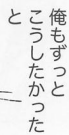 俺もずっと
こうしたかった
と